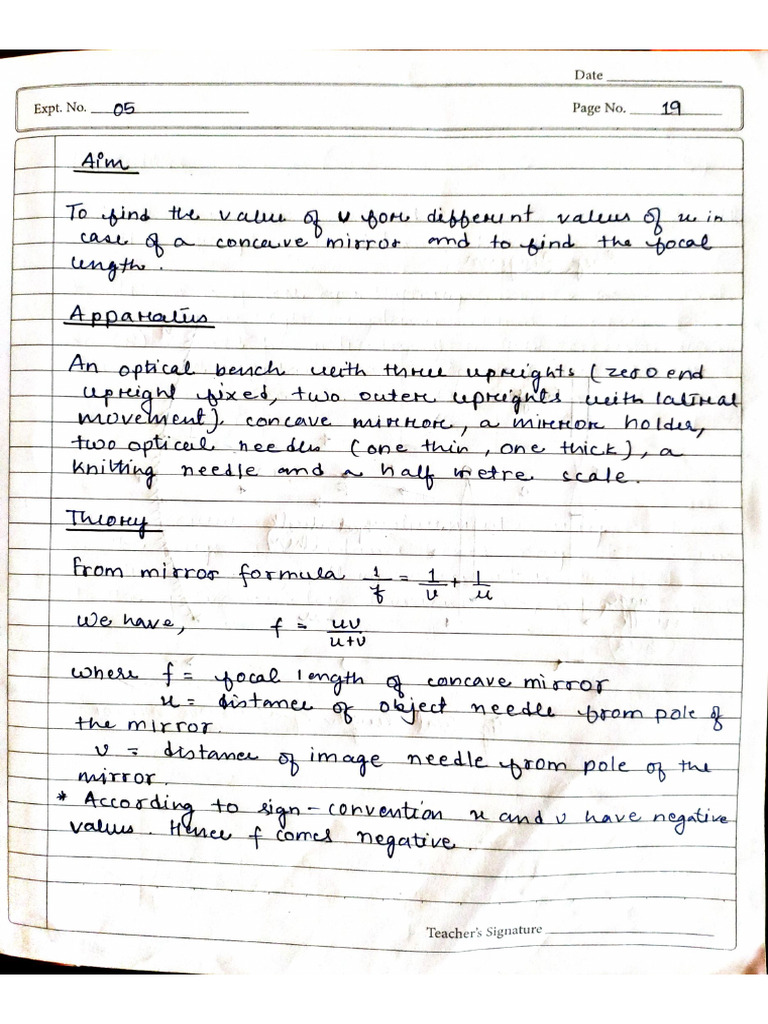 Date
Expt. No. 05 Page No. 19
Aim
To find the value of v for different values of u in
case of a concave mirror and to find the focal
length.
Apparatus
An optical bench with three uprights (zero end
upright fixed, two outer uprights with lateral
movement). concave mirror, a mirror holder,
two optical needles (one thin, one thick), a
knitting needle and a half metre scale.
Theory
From mirror formula 1/f = 1/v + 1/u
We have, f = uv/u+v
where f = focal length of concave mirror
u = distance of object needle from pole of
the mirror.
v = distance of image needle from pole of the
mirror.
* According to sign-convention u and v have negative
values. Hence f comes negative.
Teacher's Signature